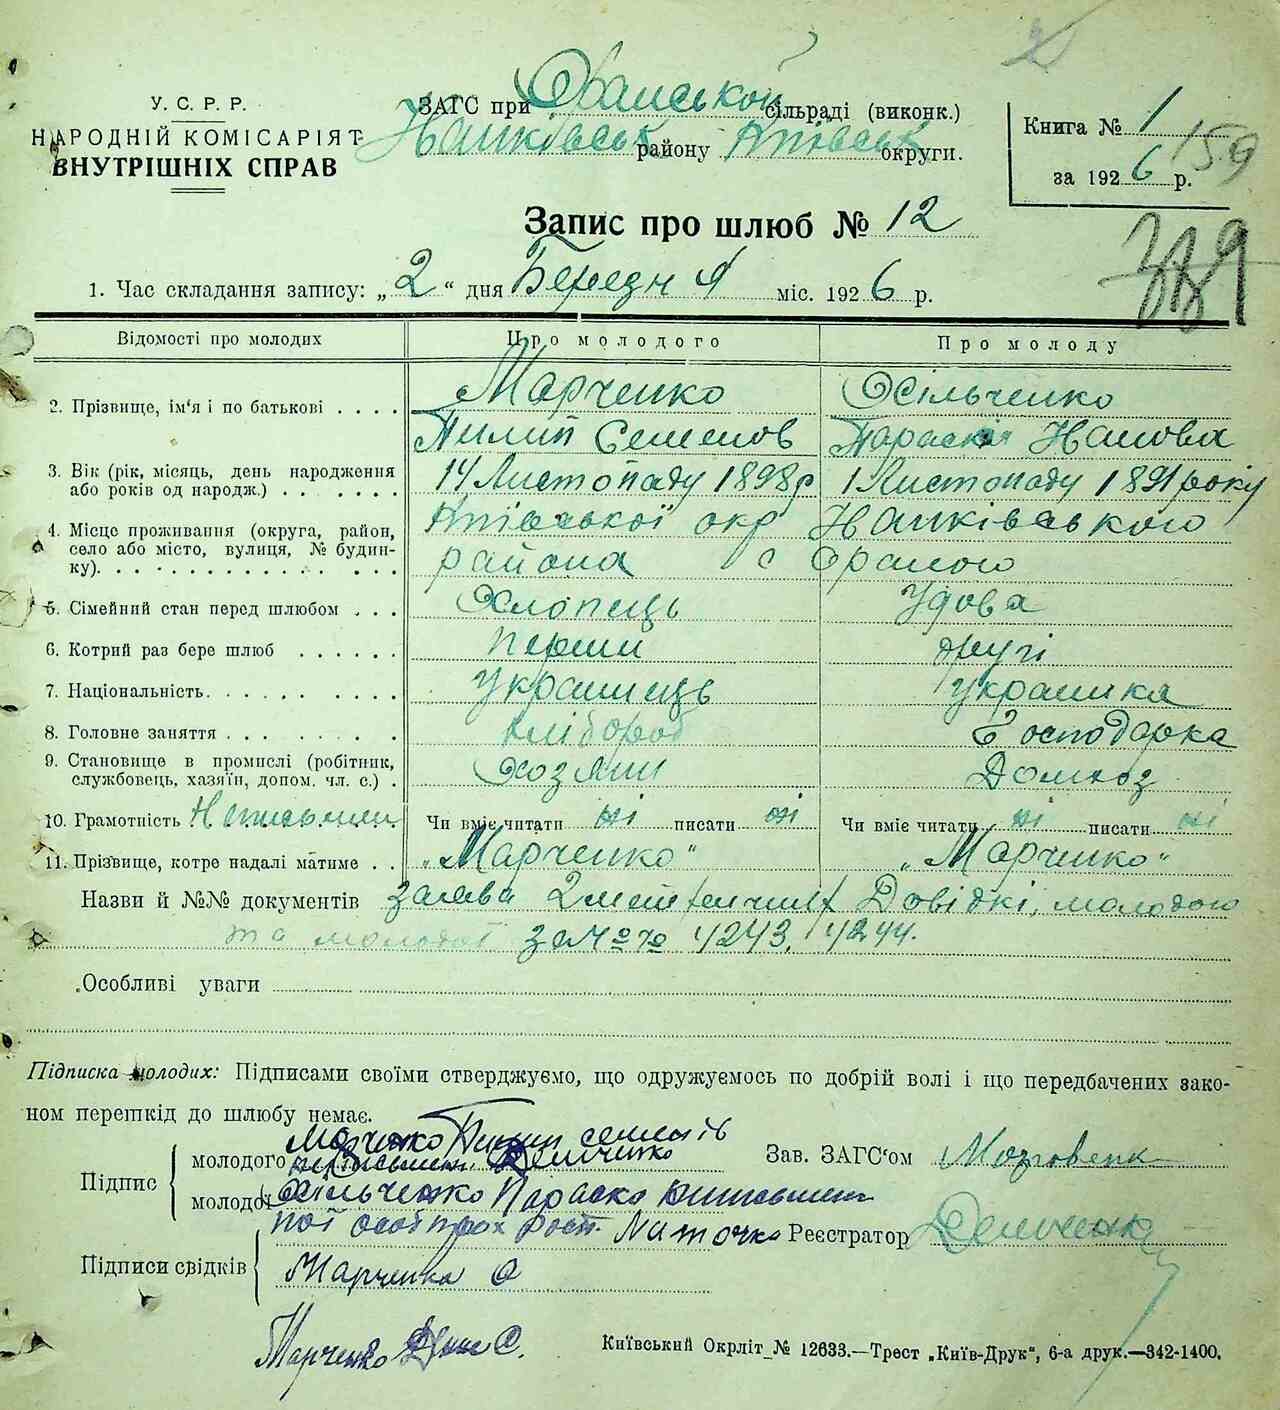 У.С.Р.Р.
НАРОДНІЙ КОМІСАРІЯТ
ВНУТРІШНІХ СПРАВ
ЗАГС при Оранській сільраді (виконк.)
району округи.
Книга № 1
за 1926 р.
159
Запис про шлюб № 12
1. Час складання запису: „2“ дня Березня міс. 1926 р.
Відомості про молодих Про молодого Про молоду
2. Прізвище, ім'я і по батькові Марченко Хільченко
Пилип Семенов Параска Иванова
3. Вік (рік, місяць, день народження або років од народж.) 14 Листопаду 1898 р 1 Листопаду 1891 року
4. Місце проживання (округа, район, село або місто, вулиця, № будинку) Київської окр Иванківського
района с Ораного
5. Сімейний стан перед шлюбом Хлопець Удова
6. Котрий раз бере шлюб перший другі
7. Національність Украинець Украинка
8. Головне заняття хлібороб Господарка
9. Становище в промислі (робітник, службовець, хазяїн, допом. чл. с.) Хозяин Домхоз
10. Грамотність Неписьмени Чи вміє читати ні писати ні Чи вміє читати ні писати ні
11. Прізвище, котре надалі матиме „Марченко“ „Марченко“
Назви й №№ документів заява Довідкі, молодого
та молодої за №№ 4243, 4244.
Особливі уваги
Підписка молодих: Підписами своїми стверджуємо, що одружуємось по добрій волі і що передбачених зако-
ном перешкід до шлюбу немає.
Підпис
молодого Марченко Пилип
молодої Хільченко Параска
Зав. ЗАГС'ом
Реєстратор Демченко
Підписи свідків
Марченко О
Марченко
Київський Окрліт № 12633.—Трест „Київ-Друк“, 6-а друк.—342-1400.